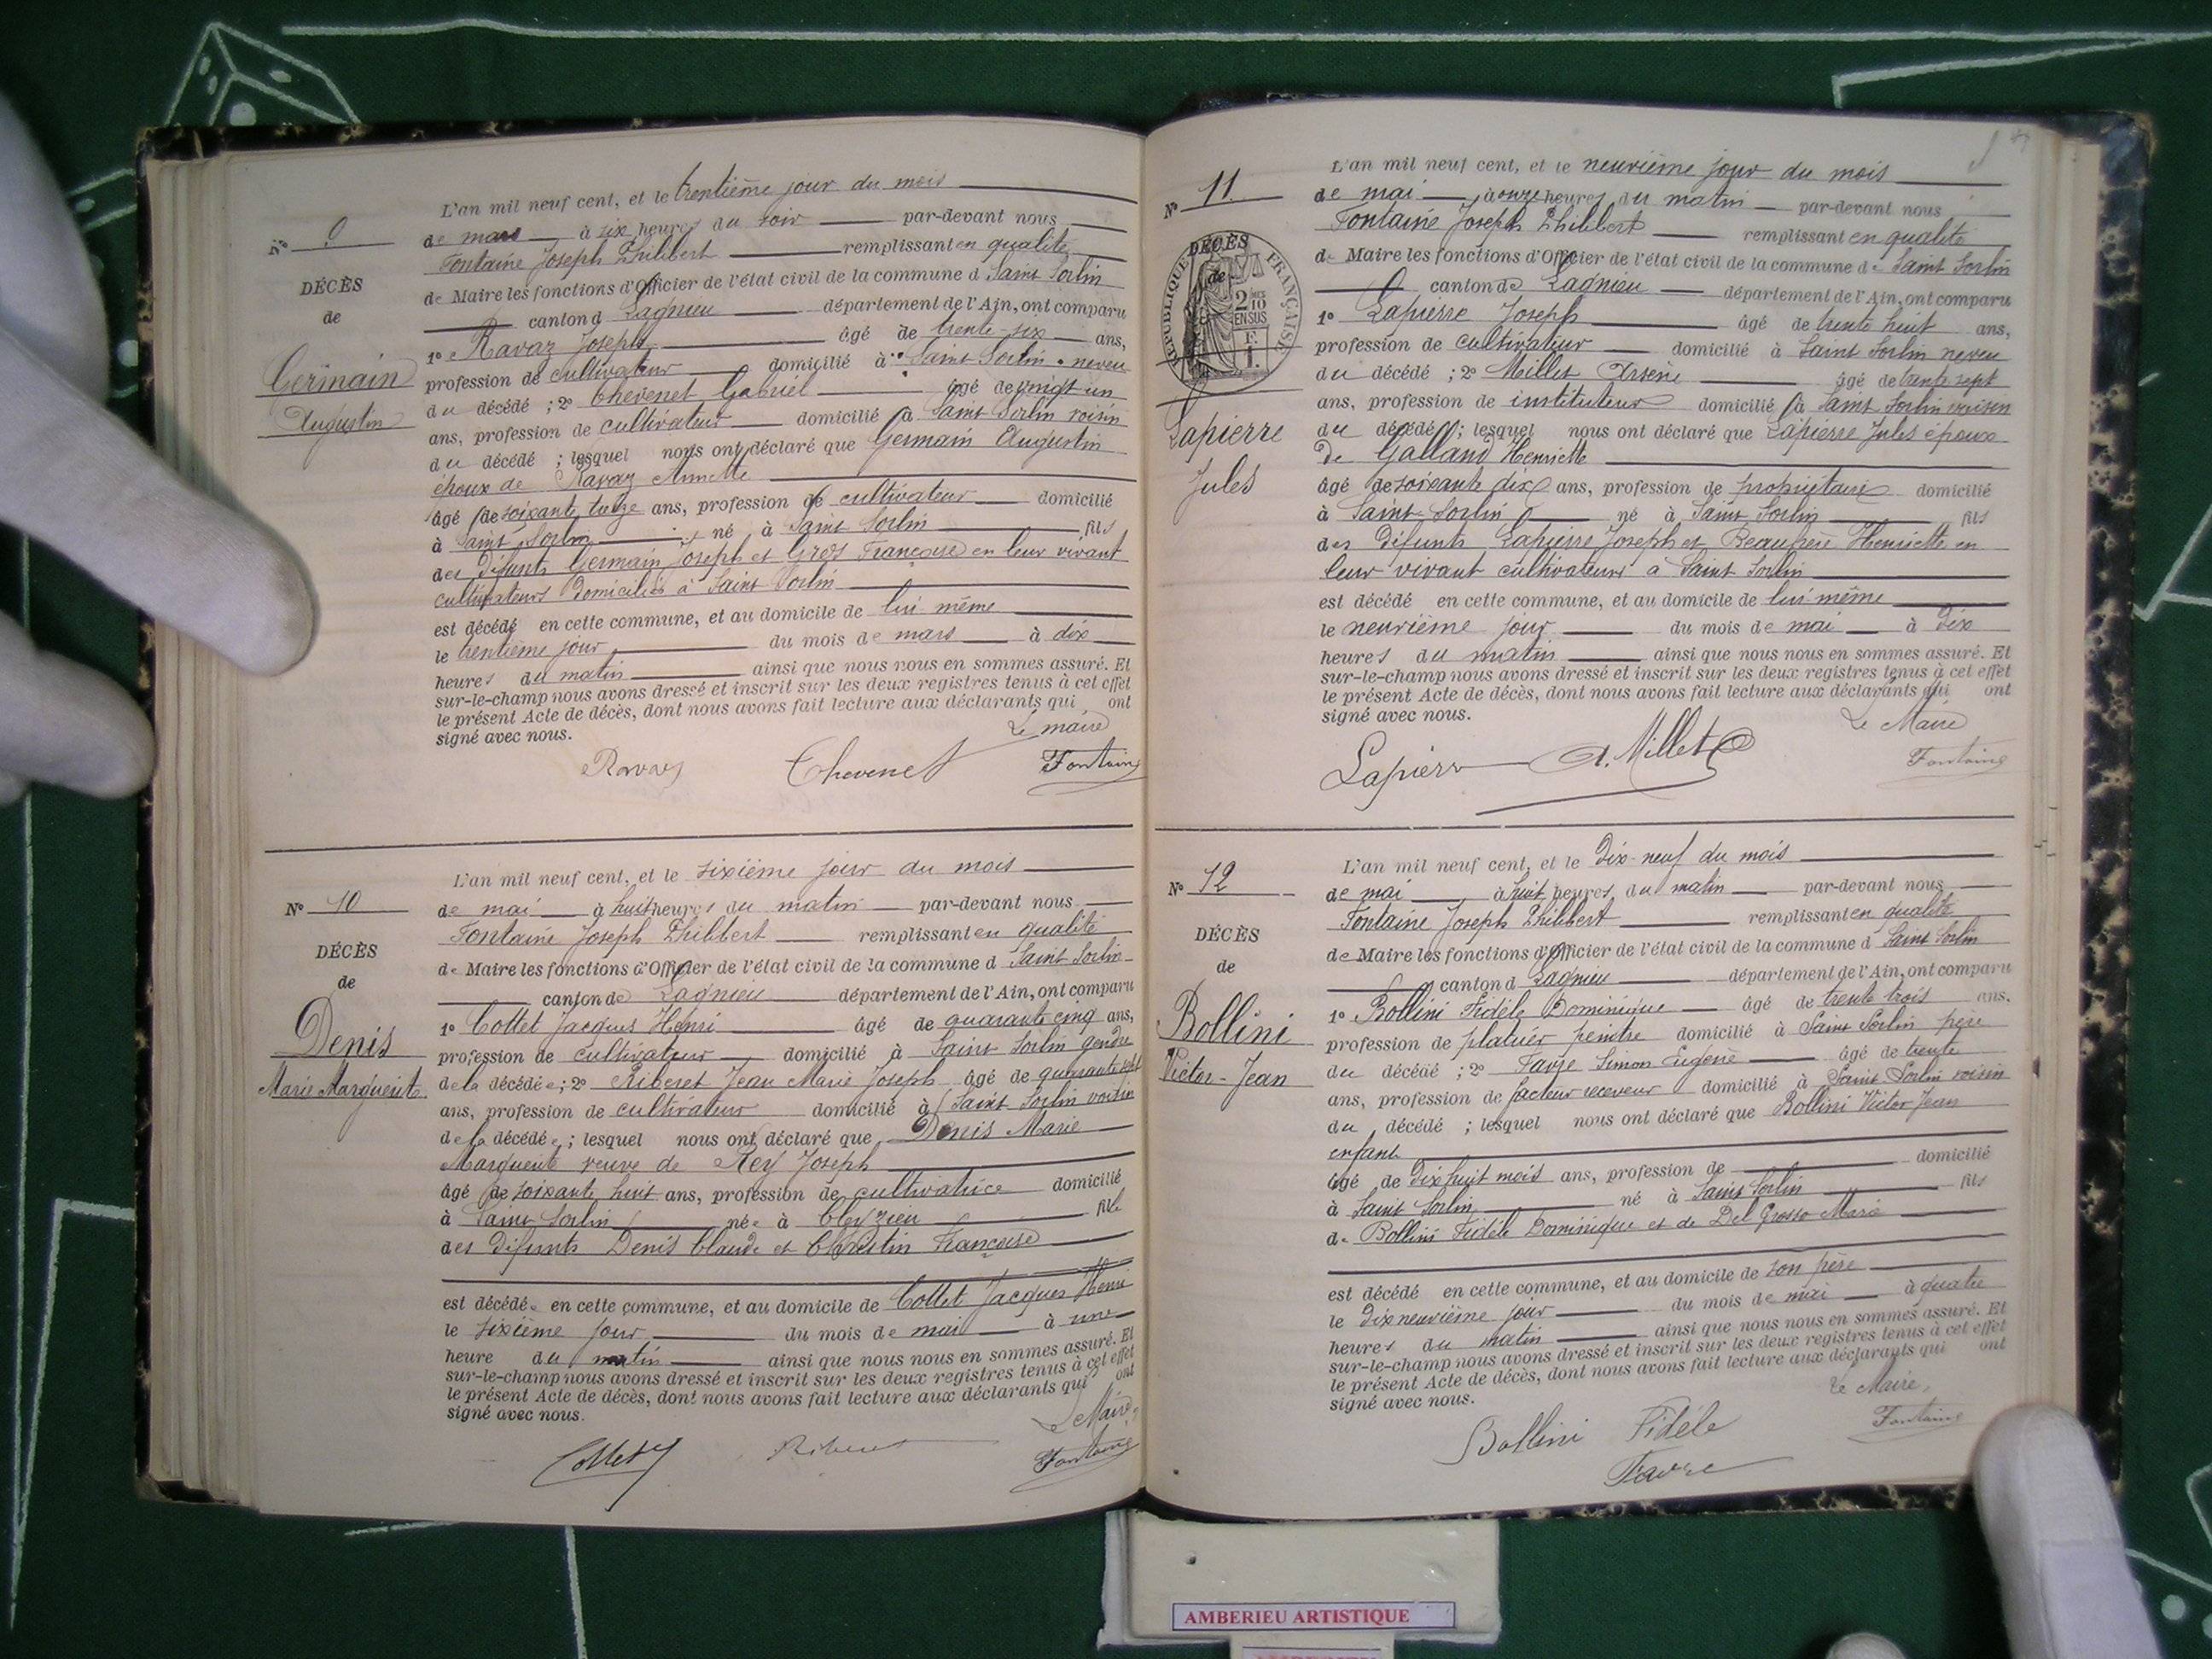 L'an mil neuf cent, et le trentième jour du mois
N° 9
de mars à six heures du soir par-devant nous
Fontaine Joseph Philibert remplissant en qualité
DÉCÈS
de Maire les fonctions d'Officier de l'état civil de la commune d Saint Sorlin
de
canton d Lagnieu département de l'Ain, ont comparu
1° Ravaz Joseph âgé de trente-six ans,
Germain
profession de cultivateur domicilié à Saint Sorlin neveu
Augustin
du décédé ; 2° Chevenet Gabriel âgé de vingt un
ans, profession de cultivateur domicilié à Saint Sorlin voisin
du décédé ; lesquel nous ont déclaré que Germain Augustin
époux de Ravaz Annette
âgé de soixante treize ans, profession de cultivateur domicilié
à Saint Sorlin né à Saint Sorlin fils
des défunts Germain Joseph et Gros Françoise en leur vivant
cultivateurs domiciliés à Saint Sorlin
est décédé en cette commune, et au domicile de lui même
le trentième jour du mois de mars à dix
heures du matin ainsi que nous nous en sommes assuré. Et
sur-le-champ nous avons dressé et inscrit sur les deux registres tenus à cet effet
le présent Acte de décès, dont nous avons fait lecture aux déclarants qui ont
signé avec nous.
Le maire
Ravaz Chevenet Fontaine
L'an mil neuf cent, et le sixième jour du mois
N° 10
de mai à huit heures du matin par-devant nous
Fontaine Joseph Philibert remplissant en qualité
DÉCÈS
de Maire les fonctions d'Officier de l'état civil de la commune d Saint Sorlin
de
canton de Lagnieu département de l'Ain, ont comparu
Denis
1° Collet Jacques Henri âgé de quarante cinq ans,
profession de cultivateur domicilié à Saint Sorlin gendre
Marie Marguerite
de la décédée ; 2° Riberet Jean Marie Joseph âgé de quarante
ans, profession de cultivateur domicilié à Saint Sorlin voisin
de la décédée ; lesquel nous ont déclaré que Denis Marie
Marguerite veuve de Rey Joseph
âgé de soixante huit ans, profession de cultivatrice domicilié
à Saint Sorlin née à Cleyzieu fille
des défunts Denis Claude et Christin Françoise
est décédée en cette commune, et au domicile de Collet Jacques Henri
le sixième jour du mois de mai à une
heure du matin ainsi que nous nous en sommes assuré. Et
sur-le-champ nous avons dressé et inscrit sur les deux registres tenus à cet effet
le présent Acte de décès, dont nous avons fait lecture aux déclarants qui ont
signé avec nous.
Le Maire,
Collet Riberet Fontaine
L'an mil neuf cent, et le neuvième jour du mois
N° 11
de mai à onze heures du matin par-devant nous
Fontaine Joseph Philibert remplissant en qualité
DÉCÈS
de
RÉPUBLIQUE FRANÇAISE
2 MES
10
EN SUS
F.
1.
de Maire les fonctions d'Officier de l'état civil de la commune de Saint Sorlin
canton de Lagnieu département de l'Ain, ont comparu
1° Lapierre Joseph âgé de trente huit ans,
profession de cultivateur domicilié à Saint Sorlin neveu
du décédé ; 2° Millet Arsène âgé de trente sept
ans, profession de instituteur domicilié à Saint Sorlin voisin
Lapierre
du décédé ; lesquel nous ont déclaré que Lapierre Jules époux
de Galland Henriette
Jules
âgé de soixante dix ans, profession de propriétaire domicilié
à Saint-Sorlin né à Saint Sorlin fils
des défunts Lapierre Joseph et Beaupère Henriette en
leur vivant cultivateurs à Saint Sorlin
est décédé en cette commune, et au domicile de lui même
le neuvième jour du mois de mai à dix
heures du matin ainsi que nous nous en sommes assuré. Et
sur-le-champ nous avons dressé et inscrit sur les deux registres tenus à cet effet
le présent Acte de décès, dont nous avons fait lecture aux déclarants qui ont
signé avec nous.
Le Maire
Lapierre A. Millet Fontaine
L'an mil neuf cent, et le dix-neuf du mois
N° 12
de mai à huit heures du matin par-devant nous
Fontaine Joseph Philibert remplissant en qualité
DÉCÈS
de Maire les fonctions d'Officier de l'état civil de la commune d Saint Sorlin
de
canton d Lagnieu département de l'Ain, ont comparu
1° Bollini Fidèle Dominique âgé de trente trois ans,
Bollini
profession de platrier peintre domicilié à Saint Sorlin père
Victor-Jean
du décédé ; 2° Favre Simon Eugène âgé de trente
ans, profession de facteur receveur domicilié à Saint Sorlin voisin
du décédé ; lesquel nous ont déclaré que Bollini Victor Jean
enfant
âgé de dix huit mois ans, profession de domicilié
à Saint Sorlin né à Saint Sorlin fils
de Bollini Fidèle Dominique et de Del Grosso Marie
est décédé en cette commune, et au domicile de son père
le dix neuvième jour du mois de mai à quatre
heures du matin ainsi que nous nous en sommes assuré. Et
sur-le-champ nous avons dressé et inscrit sur les deux registres tenus à cet effet
le présent Acte de décès, dont nous avons fait lecture aux déclarants qui ont
signé avec nous.
Le Maire,
Bollini Fidèle Fontaine
Favre
AMBERIEU ARTISTIQUE